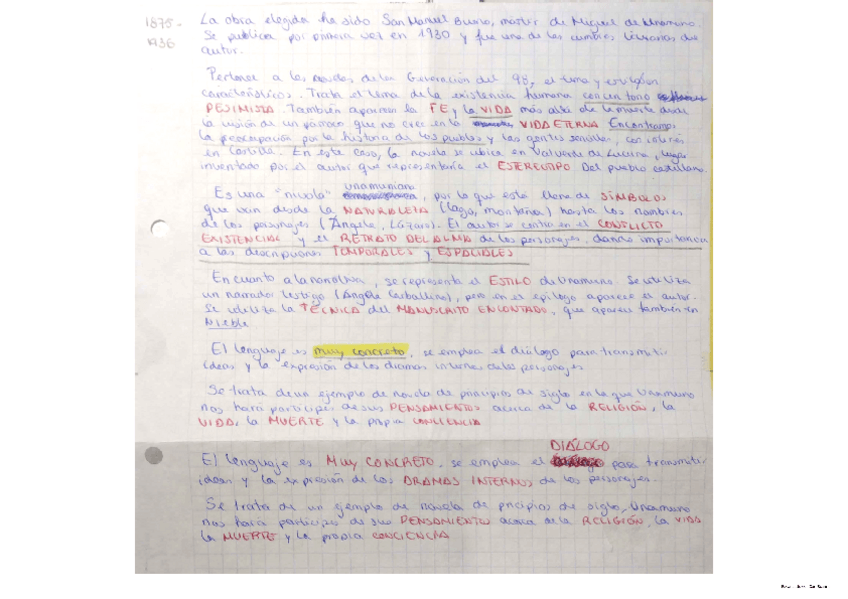 1875-
1936
La obra elegida ha sido San Manuel Bueno, mártir de Miguel de Unamuno.
Se publica por primera vez en 1930 y fue una de las cumbres literarias del
autor.
Pertenece a las novelas de la Generación del 98, el tema y estilo son
característicos. Trata el tema de la existencia humana con un tono
PESIMISTA. También aparecen la FE y la VIDA más allá de la muerte desde
la visión de un párroco que no cree en la VIDA ETERNA. Encontramos
la preocupación por la historia de los pueblos y las gentes sencillas, con interés
en Castilla. En este caso, la novela se ubica en Valverde de Lucerna, lugar
inventado por el autor que representaría el ESTEREOTIPO del pueblo castellano.
Es una "nivola" unamuniana, por lo que está llena de SÍMBOLOS
que van desde la NATURALEZA (lago, montaña) hasta los nombres
de los personajes (Ángela, Lázaro). El autor se centra en el CONFLICTO
EXISTENCIAL y el RETRATO DEL ALMA de los personajes, dando importancia
a las descripciones TEMPORALES y ESPACIALES
En cuanto a la narrativa, se representa el ESTILO de Unamuno. Se utiliza
un narrador testigo (Ángela Carballino), pero en el epílogo aparece el autor.
Se utiliza la TÉCNICA del MANUSCRITO ENCONTADO, que aparece también en
Niebla
El lenguaje es muy concreto, se emplea el diálogo para transmitir
ideas y la expresión de los dramas internos de los personajes
Se trata de un ejemplo de novela de principios de siglo en la que Unamuno
nos hará partícipes de sus PENSAMIENTOS acerca de la RELIGIÓN, la
VIDA, la MUERTE y la propia CONCIENCIA
DIÁLOGO
El lenguaje es MUY CONCRETO, se emplea el para transmitir
ideas y la expresión de los DRAMAS INTERNOS de los personajes.
Se trata de un ejemplo de novela de pricipios de siglo, Unamuno
nos hará partícipes de sus PENSAMIENTOS acerca de la RELIGIÓN, la VIDA
la MUERTE y la propia CONCIENCIA